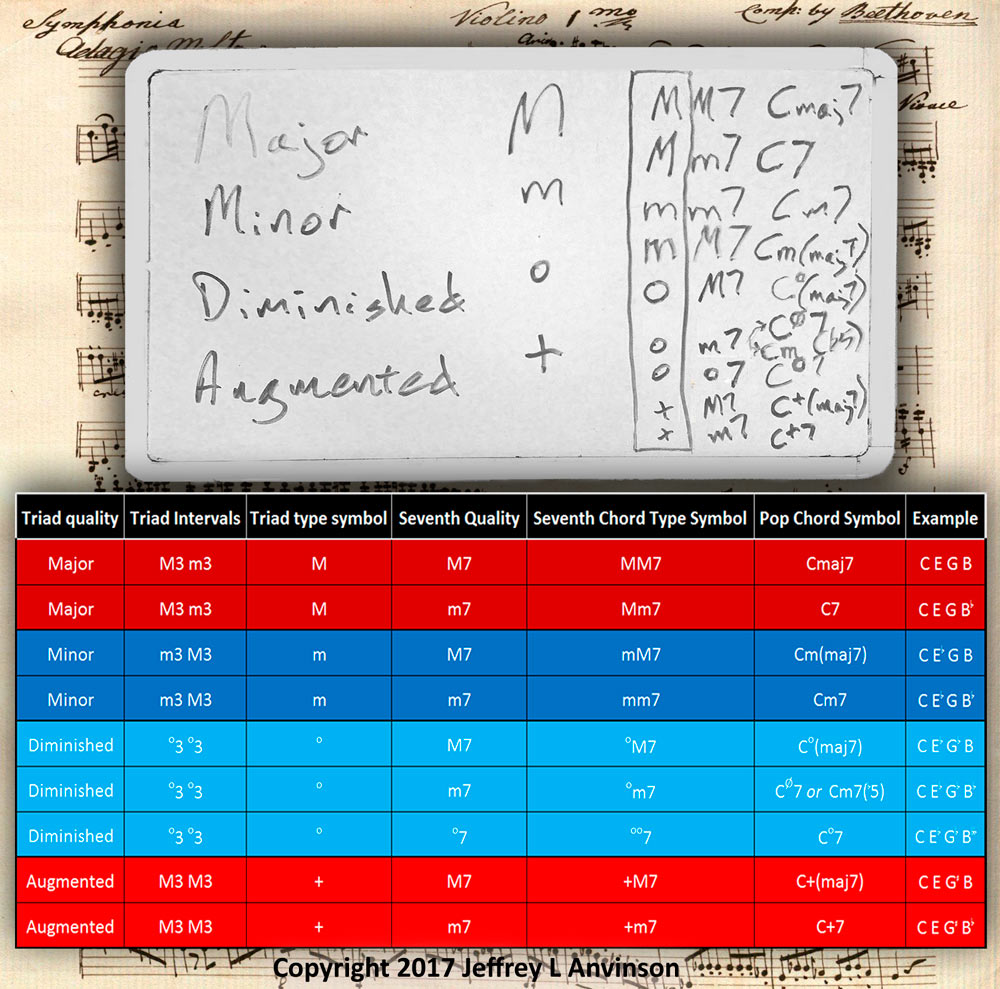 Symphonia Violino 1 mo Comp: by Beethoven
Adagio Molto
Vivace
Major M M M7 Cmaj7
M m7 C7
Minor m m m7 Cm7
m M7 Cm(maj7)
Diminished o o M7 Co(maj7)
o m7 CØ7
Cm (b5)
o o7 Co7
Augmented + + M7 C+(maj7)
+ m7 C+7
Triad quality Triad Intervals Triad type symbol Seventh Quality Seventh Chord Type Symbol Pop Chord Symbol Example
Major M3 m3 M M7 MM7 Cmaj7 C E G B
Major M3 m3 M m7 Mm7 C7 C E G B♭
Minor m3 M3 m M7 mM7 Cm(maj7) C E♭ G B
Minor m3 M3 m m7 mm7 Cm7 C E♭ G B♭
Diminished o3 o3 o M7 oM7 Co(maj7) C E♭ G♭ B
Diminished o3 o3 o m7 om7 CØ7 or Cm7(♭5) C E♭ G♭ B♭
Diminished o3 o3 o o7 oo7 Co7 C E♭ G♭ B𝄫
Augmented M3 M3 + M7 +M7 C+(maj7) C E G♯ B
Augmented M3 M3 + m7 +m7 C+7 C E G♯ B♭
Copyright 2017 Jeffrey L Anvinson